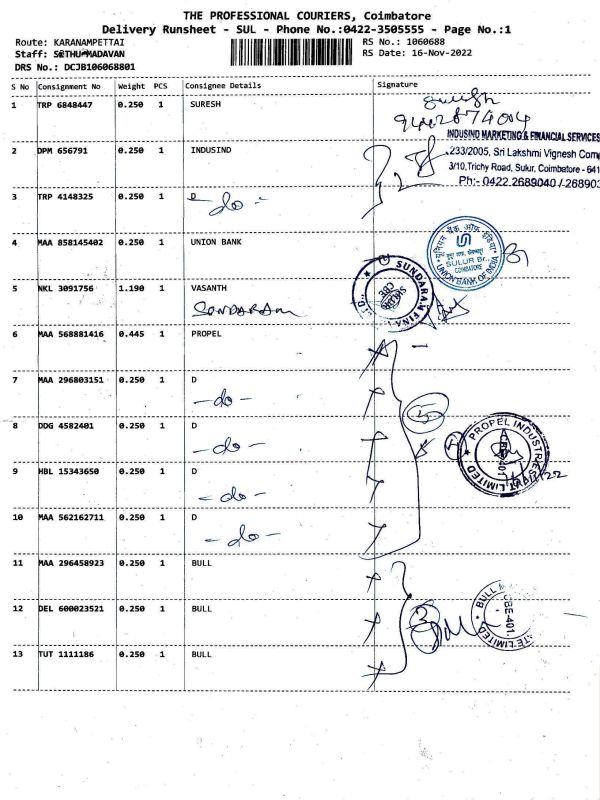 THE PROFESSIONAL COURIERS, Coimbatore
Delivery Runsheet - SUL - Phone No.:0422-3505555 - Page No.:1
Route: KARANAMPETTAI
RS No.: 1060688
Staff: MADAVAN
RS Date: 16-Nov-2022
DRS No.: DCJB106068801
S No Consignment No Weight PCS Consignee Details Signature
1 TRP 6848447 0.250 1 SURESH
INDUSIND MARKETING & FINANCIAL SERVICES
2 DPM 656791 0.250 1 INDUSIND
233/2005, Sri Lakshmi Vignesh Com
3/10, Trichy Road, Sulur, Coimbatore - 641
Ph:- 0422.2689040 / 268903
3 TRP 4148325 0.250 1 D
-do-
4 MAA 858145402 0.250 1 UNION BANK
यूनियन बैंक ऑफ इंडिया
SULUR Br.,
COIMBATORE
UNION BANK OF INDIA
5 NKL 3091756 1.190 1 VASANTH
SUNDARAM
SUNDARAM FINA
CBE
6 MAA 568881416 0.445 1 PROPEL
7 MAA 296803151 0.250 1 D
-do-
5
8 DDG 4582401 0.250 1 D
-do-
PROPEL INDUSTRIES
LIMITED
9 HBL 15343650 0.250 1 D
-do-
10 MAA 562162711 0.250 1 D
-do-
11 MAA 296458923 0.250 1 BULL
12 DEL 600023521 0.250 1 BULL
3
BULL
CBE-401.
LIMITED
13 TUT 1111186 0.250 1 BULL